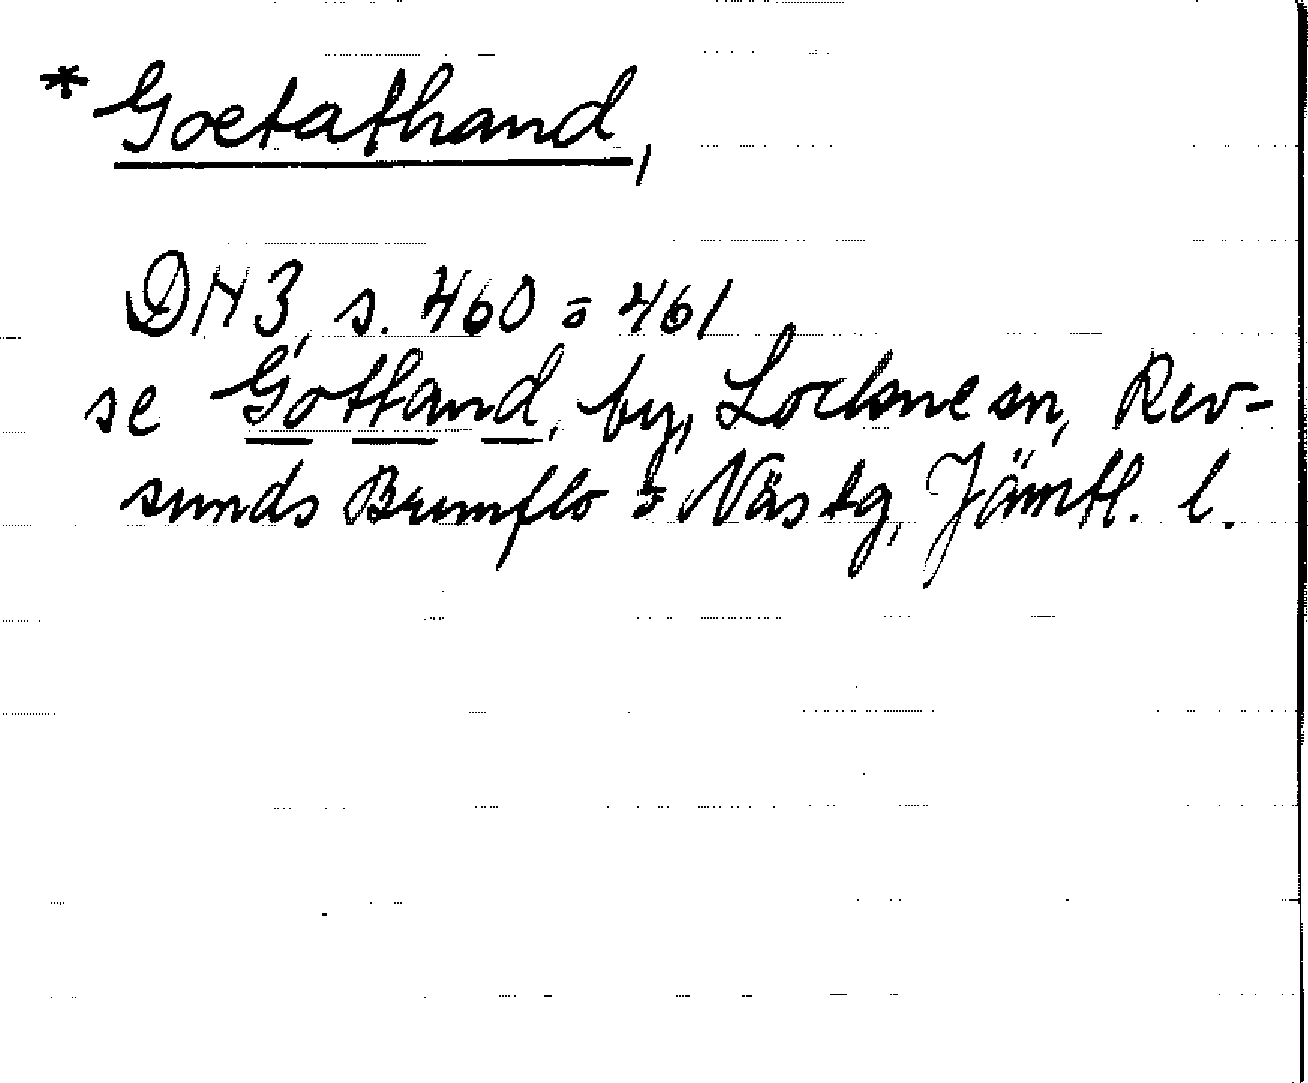 * Goetathand,
DN3, s. 460 o 461
se Gotland, by, Lockne sn, Rev-
sunds Brunflo o Näs tg, Jämtl. l.